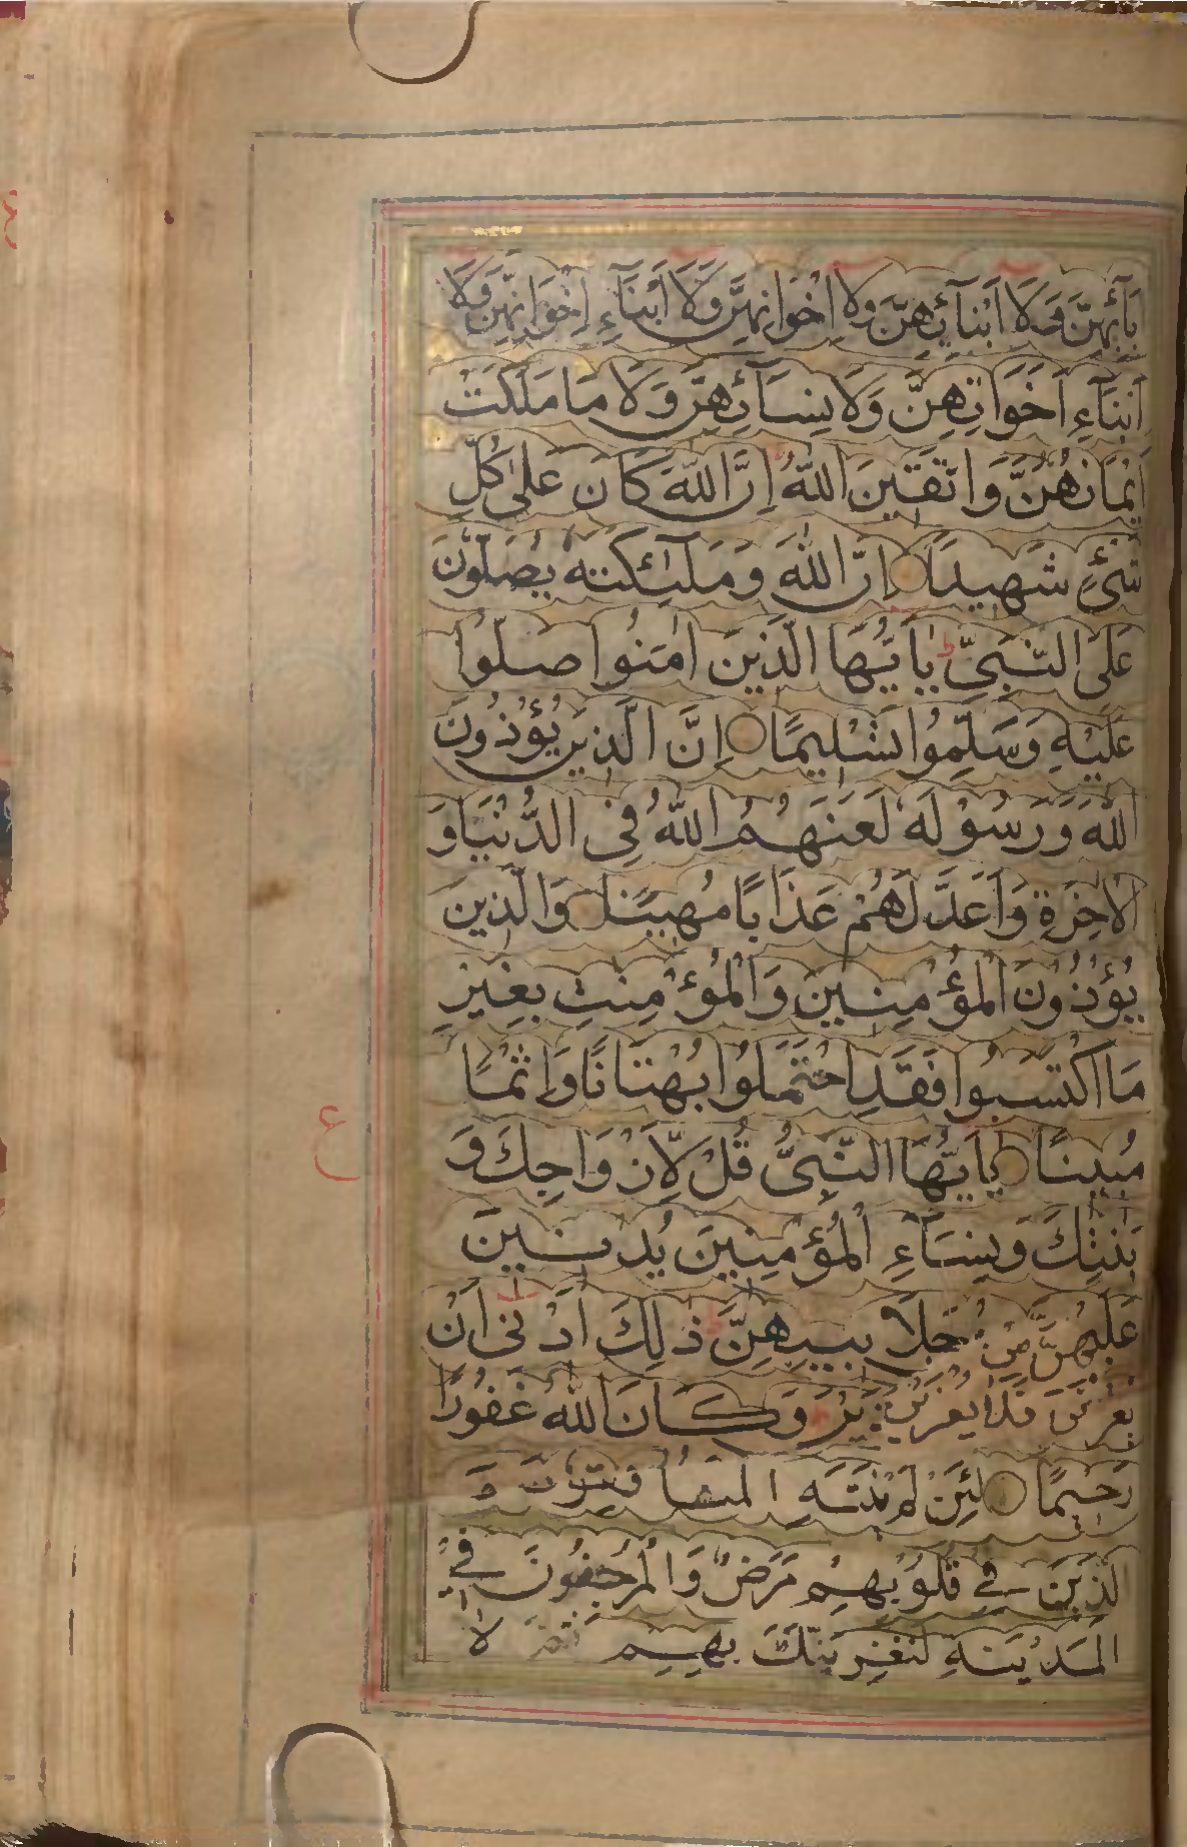 بَآئِهِنَّ وَلَا اَبْنَآئِهِنَّ وَلَا اِخْوَانِهِنَّ وَلَا اَبْنَآءِ اِخْوَانِهِنَّ وَلَا
اَبْنَآءِ اَخَوَاتِهِنَّ وَلَا نِسَآئِهِنَّ وَلَا مَا مَلَكَتْ
اَيْمَانُهُنَّ وَاتَّقِينَ اللّٰهَ اِنَّ اللّٰهَ كَانَ عَلٰى كُلِّ
شَىْءٍ شَهِيدًا اِنَّ اللّٰهَ وَمَلٰٓئِكَتَهٗ يُصَلُّوْنَ
عَلَى النَّبِىِّ يٰاَيُّهَا الَّذِينَ اٰمَنُوا صَلُّوْا
عَلَيْهِ وَسَلِّمُوا تَسْلِيمًا اِنَّ الَّذِينَ يُؤْذُوْنَ
اللّٰهَ وَرَسُوْلَهٗ لَعَنَهُمُ اللّٰهُ فِى الدُّنْيَا وَ
الْاٰخِرَةِ وَاَعَدَّ لَهُمْ عَذَابًا مُهِيْنًا وَالَّذِينَ
يُؤْذُوْنَ الْمُؤْمِنِينَ وَالْمُؤْمِنٰتِ بِغَيْرِ
مَا اكْتَسَبُوا فَقَدِ احْتَمَلُوْا بُهْتَانًا وَاِثْمًا
مُبِيْنًا يٰاَيُّهَا النَّبِىُّ قُلْ لِّاَزْوَاجِكَ وَ
بَنٰتِكَ وَنِسَآءِ الْمُؤْمِنِينَ يُدْنِيْنَ
عَلَيْهِنَّ مِنْ جَلَابِيبِهِنَّ ذٰلِكَ اَدْنٰى اَنْ
يُعْرَفْنَ فَلَا يُؤْذَيْنَ وَكَانَ اللّٰهُ غَفُوْرًا
رَحِيْمًا لَئِنْ لَمْ يَنْتَهِ الْمُنَافِقُوْنَ وَ
الَّذِيْنَ فِي قُلُوْبِهِمْ مَرَضٌ وَالْمُرْجِفُوْنَ فِي
الْمَدِيْنَةِ لَنُغْرِيَنَّكَ بِهِمْ ثُمَّ لَا
ع